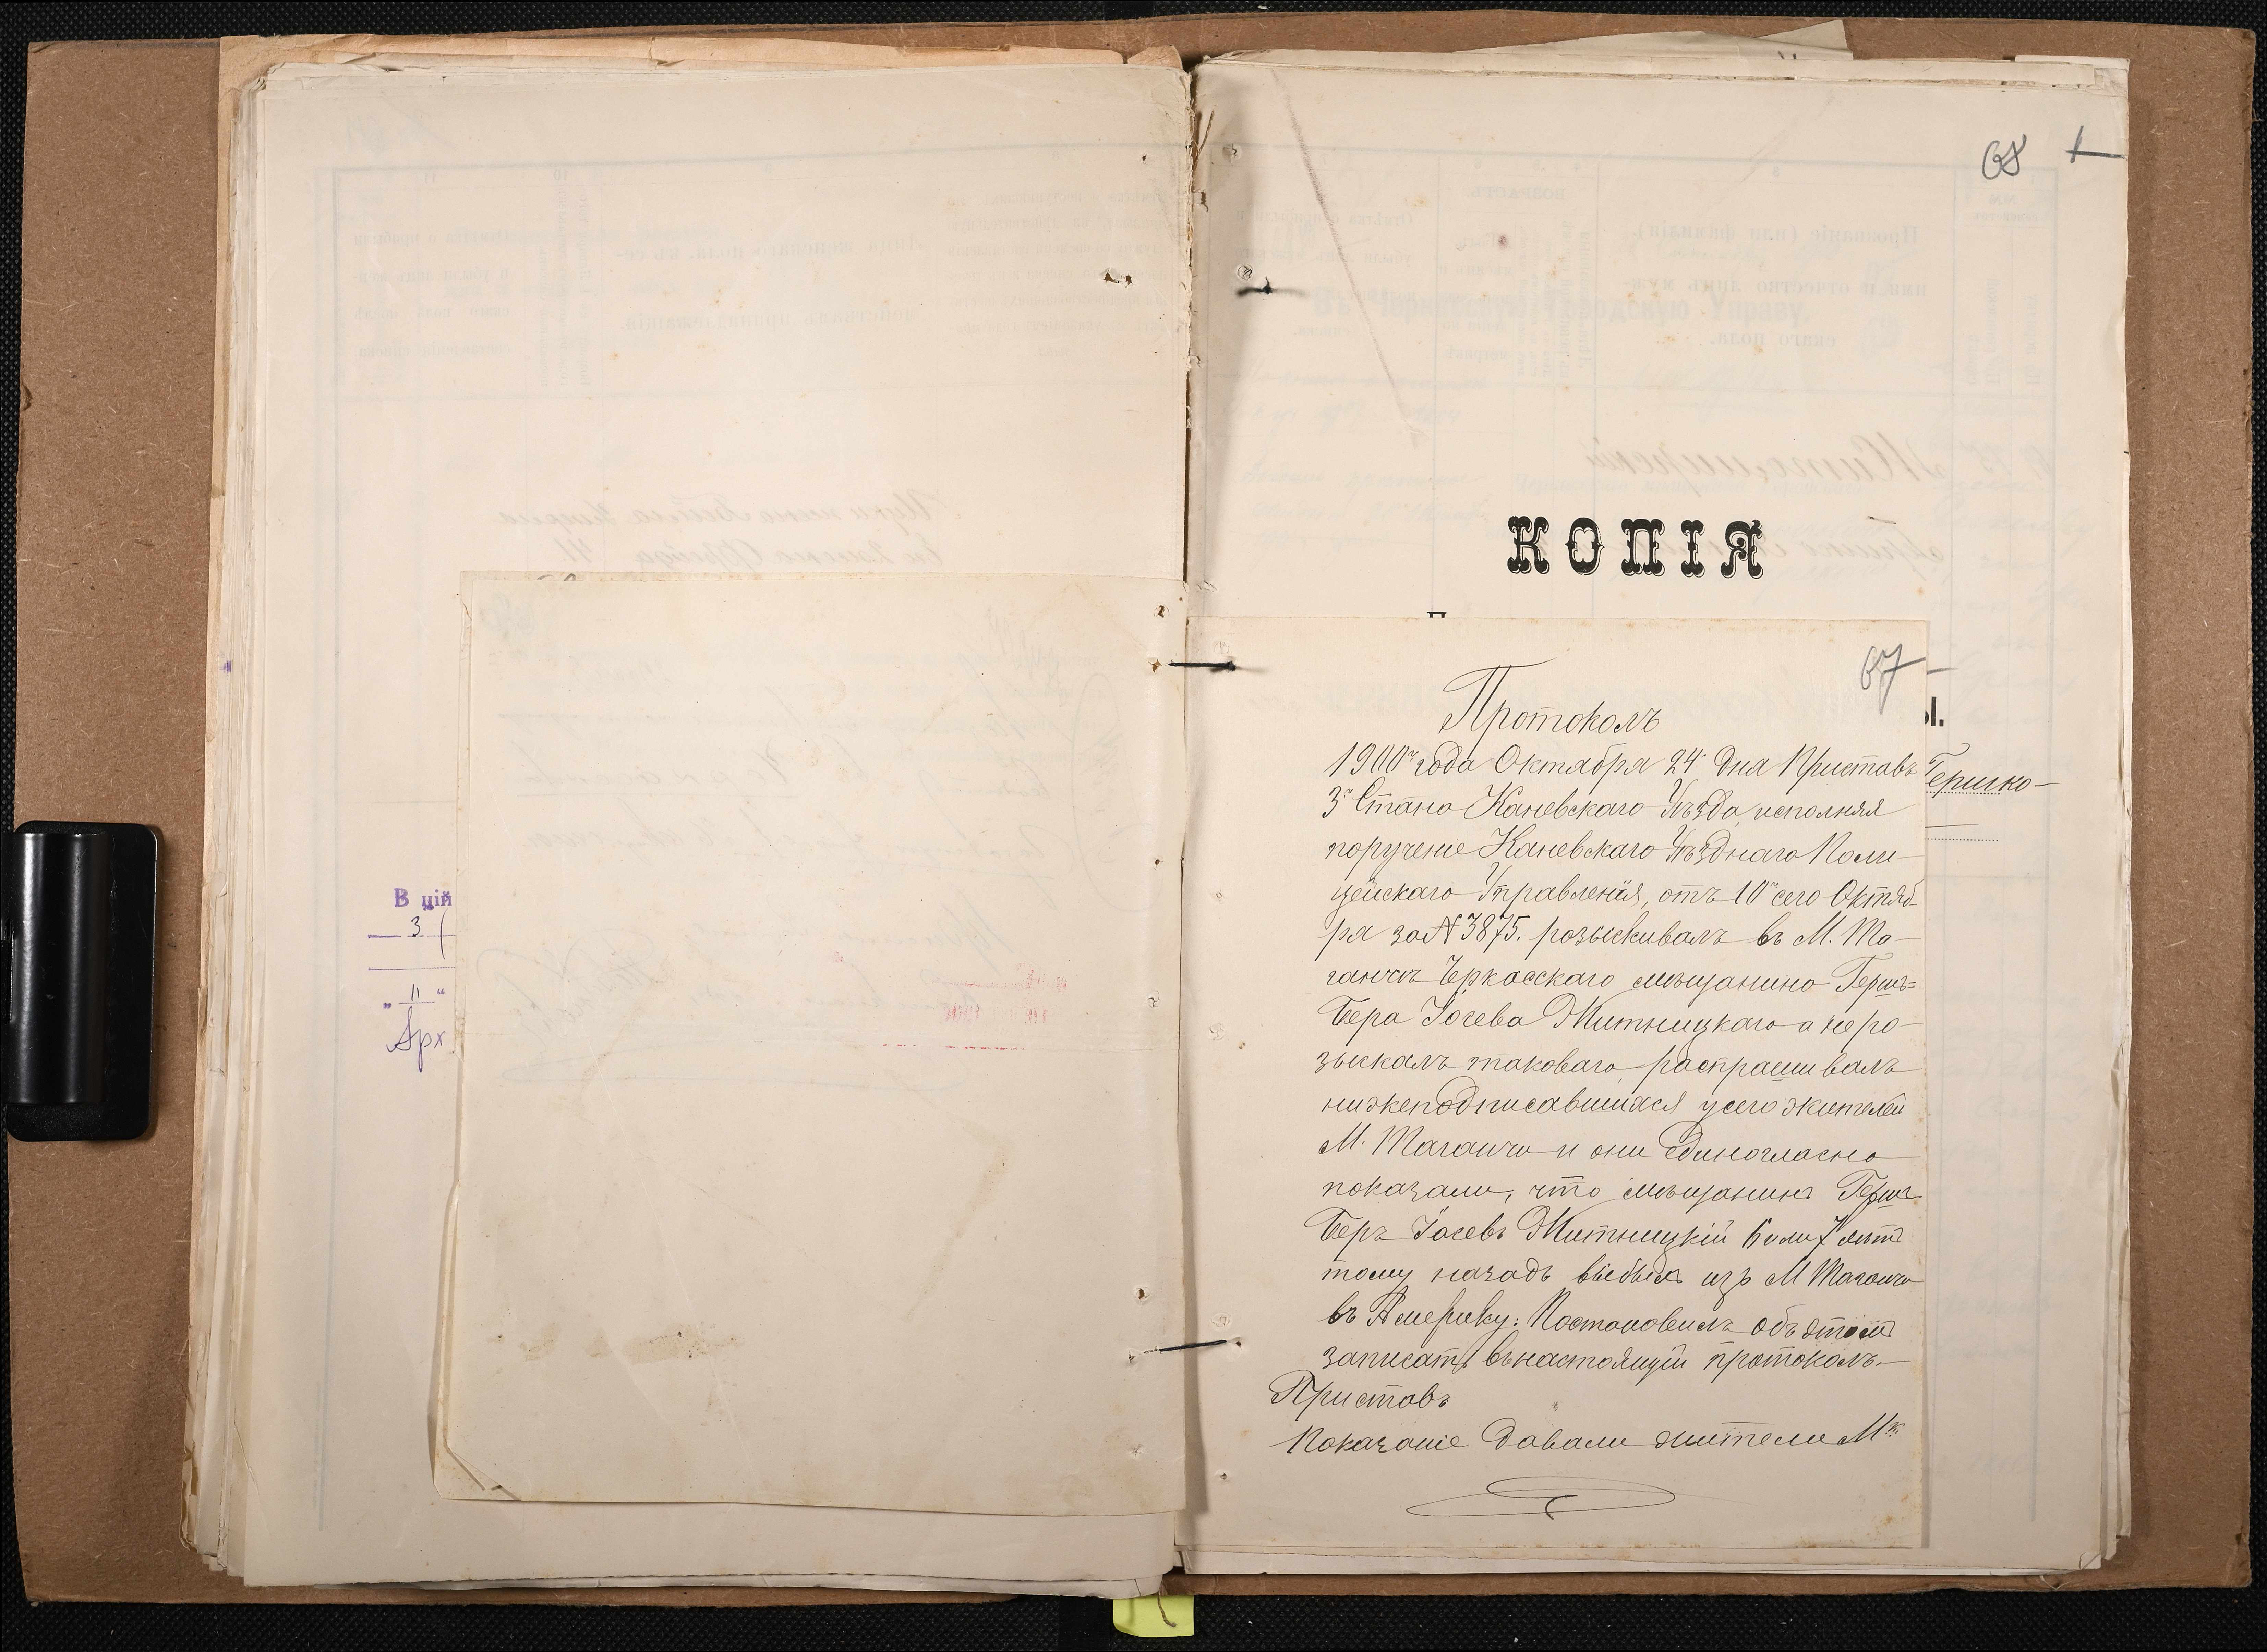 В цій
3
„ 11 “
Арх
68 1
КОПІЯ
67
ы.
Гершко-
Протоколъ
1900го года Октября 24 дня Приставъ
3го Стана Каневскаго Уѣзда, исполняя
порученіе Каневскаго Уѣзднаго Поли-
цейскаго Управленія, отъ 10го сего Октяб-
ря за № 3875. розыскивалъ въ М. Та-
ганчѣ Черкасскаго мѣщанина Гершъ=
Бера Іосева Житницкаго а не ро-
зыскалъ таковаго, распрашивалъ
нижеподписавшихся у сего жителей
М. Таганчи и они единогласно
показали, что мѣщанинъ Гершъ-
Беръ Іосевъ Житницкій 6 или 7 лѣтъ
тому назадъ выбылъ изъ М Таганчи
въ Америку: Постановилъ объ этомъ
записать въ настоящій протоколъ.—
Приставъ
Показаніе давали жители Мк.